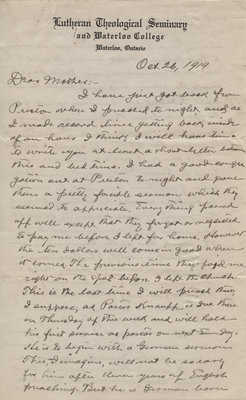 Lutheran Theological Seminary
and Waterloo College
Waterloo, Ontario
Oct. 26, 1919.
Dear Mother:-
I have just got back from
Preston where I preached to-night, and as
I made record time getting back, inside
of an hour, I think I will have time
to write you at least a short letter between
this and bed time. I had a good congre
gation out at Preston to-night and gave
them a pretty forcible sermon which they
seemed to appreciate. Everything passed
off well except that they forgot or neglected
to pay me before I left for home. However
the ten dollars will come in good when
it comes. The previous time they paid me
right on the spot before I left the church.
This is the last time I will preach there
I suppose, as Pastor Knauff is due there
on Thursday of this week and will hold
his first service as pastor on next Sunday.
He is to begin with a German sermon.
This I imagine, will not be so easy
for him after eleven years of English
preaching. But he is German born